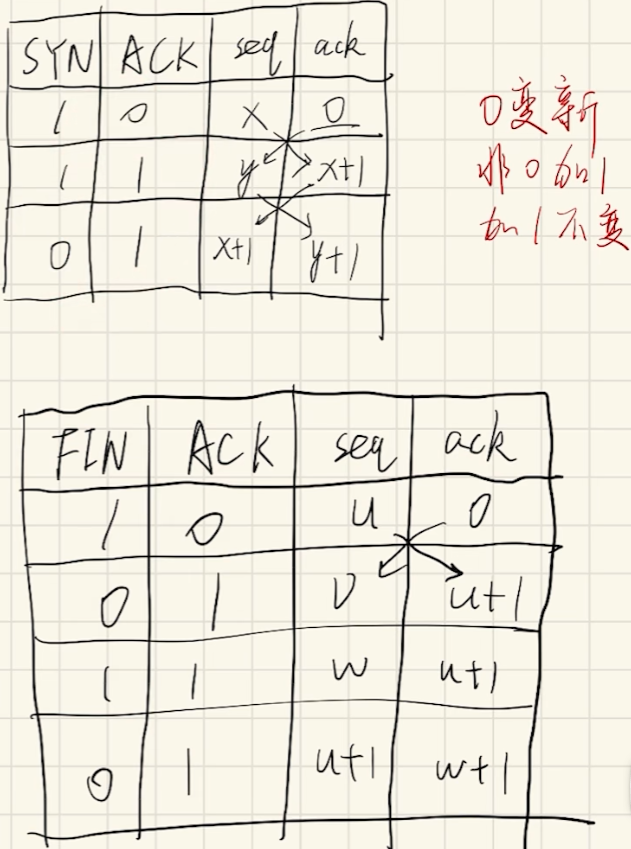 SYN ACK seq ack
1 0 x 0
1 1 y x+1
0 1 x+1 y+1
0变新
非0加1
加1不变
FIN ACK seq ack
1 0 u 0
0 1 v u+1
1 1 w u+1
0 1 u+1 w+1